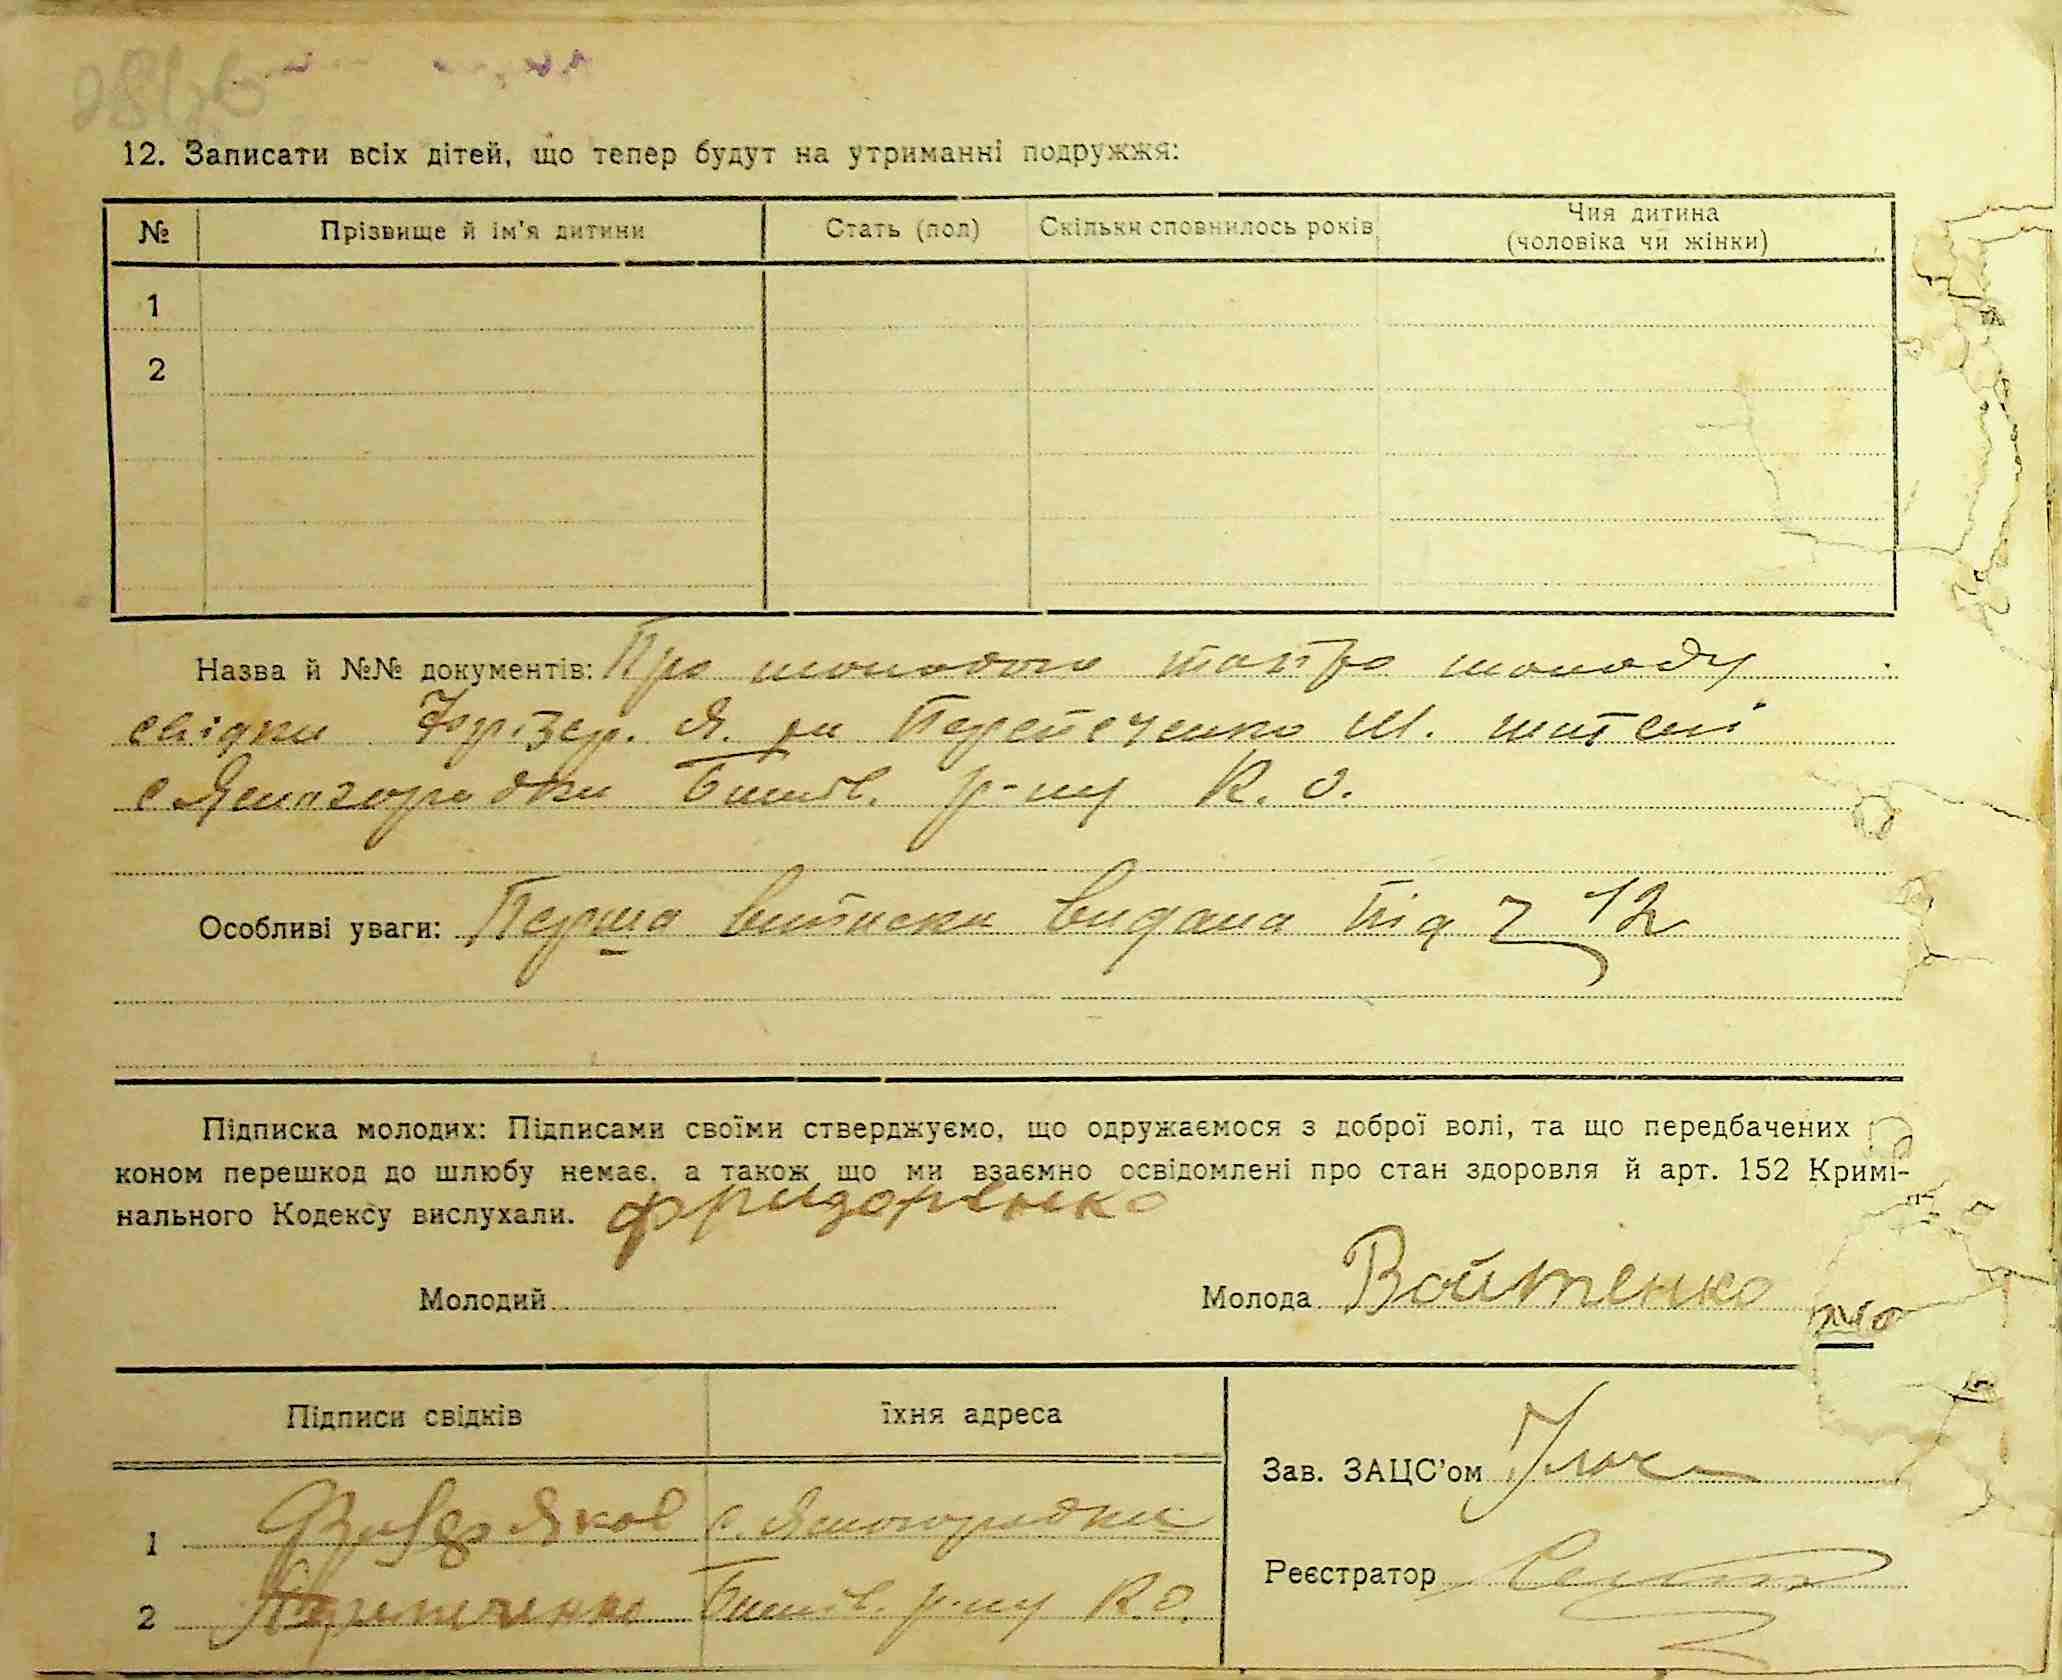 12. Записати всіх дітей, що тепер будут на утриманні подружжя:
№ Прізвище й ім'я дитини Стать (пол) Скільки сповнилось років Чия дитина (чоловіка чи жінки)
1
2
Назва й №№ документів: Про молодого та про молоду
свідки Фрізер. Я. та Перепеченко М. жителі
с Ясногородки Бишів. р-ну К. О.
Особливі уваги: Перша виписка видана під ч 12
Підписка молодих: Підписами своїми стверджуємо, що одружаємося з доброї волі, та що передбачених
коном перешкод до шлюбу немає, а також що ми взаємно освідомлені про стан здоровля й арт. 152 Кримі-
нального Кодексу вислухали.
Молодий Молода Войтенко
Підписи свідків їхня адреса
Зав. ЗАЦС'ом
1 Яков с. Ясногородки
Реєстратор
2 Перепеченко Бишів. р-ну К.О.